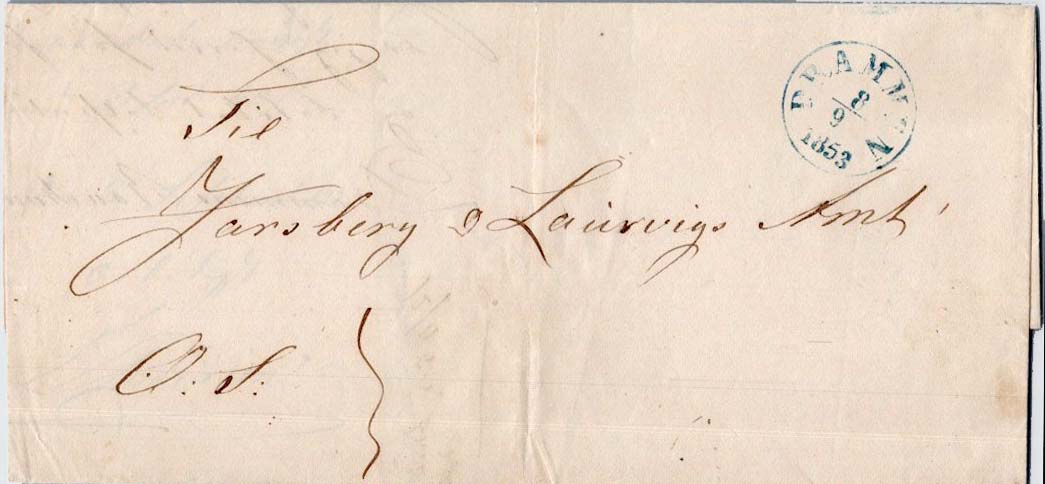 DRAMMEN
8/9
1853
Til
Jarsberg & Laurvigs Amt
O: S: